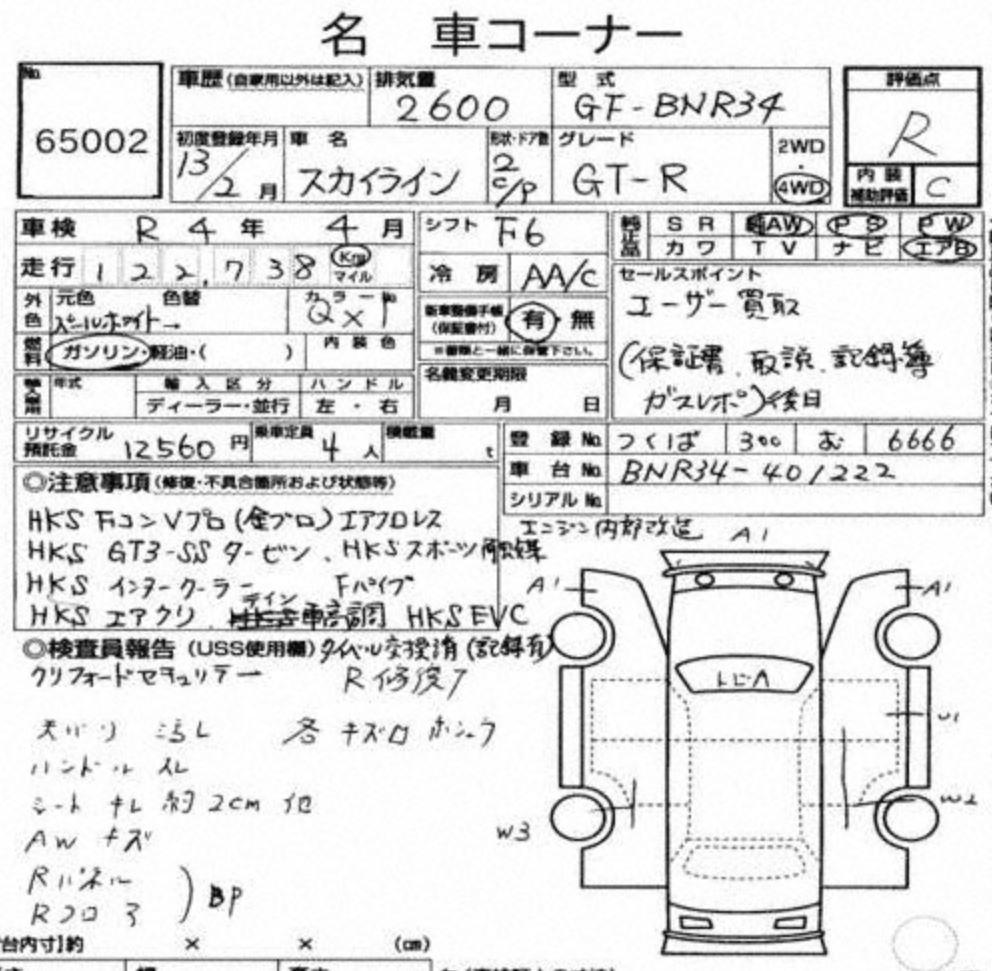 名 車コーナー
No. 65002
車歴(自家用以外は記入) 排気量 2600 型式 GF-BNR34 評価点 R
初度登録年月 13/2月 車名 スカイライン 形状・ドア数 2 c/p グレード GT-R 2WD・4WD 内装補助評価 C
車検 R4年 4月 シフト F6 純正品 SR 純AW PS PW
カワ TV ナビ エアB
走行 122,738 Km マイル 冷房 AA/C
外色 元色 パールホワイト→ 色替 カラーNo QX1
セールスポイント
ユーザー買取
(保証書、取説、記録簿
ガスレポ)後日
新車整備手帳(保証書付) 有・無
※書類と一緒に保管下さい。
燃料 ガソリン・軽油・( ) 内装色
名義変更期限 月 日
年式 輸入区分 ハンドル
ディーラー・並行 左・右
リサイクル預託金 12560円 乗車定員 4人 積載量 t
登録No. つくば 300 6666
車台No. BNR34-401222
シリアルNo.
◎注意事項(修復・不具合箇所および状態等)
HKS FコンVプロ(金プロ)エアフロレス
HKS GT3-SSタービン、HKSスポーツ触媒
HKS インタークーラー Fパイプ
HKS エアクリ、テイン車高調 HKS EVC
エンジン内部改造 A1
◎検査員報告(USS使用欄) タイベル交換済(記録有)
クリフォードセキュリティー R修復ア
天バリ 汚し 各キズロ
ハンドル スレ
シート キレ 約2cm 他
AW キズ
Rパネル
Rフロア ) BP
A1 A1
U1
W3 W2
台内寸】約 × × (cm)